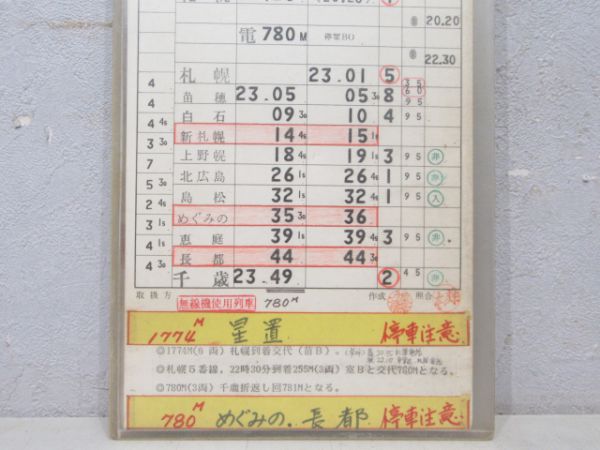 20.20
電 780M 停客BO
22.30
札幌 23.01 ⑤
4 35
苗穂 23.05 05 3s 8 60
4 95
白石 09 3s 10 4 95
4 4s
新札幌 14 4s 15 1s
3 3s
上野幌 18 4s 19 1s 3 95 非
7
北広島 26 1s 26 4s 1 95 非
5 3s
島松 32 1s 32 4s 1 95 入
2 4s
めぐみの 35 3s 36
3 1s
恵庭 39 1s 39 4s 3 95 非
4 1s
長都 44 44 3s
4 3s
千歳 23.49 ② 45 非
取扱方 無線機使用列車 780M 作成 照合
1774M 星置 停車注意
◎1774M(6両)札幌到着交代(苗B)。
◎札幌5番線、22時30分到着255M(3両)室Bと交代780Mとなる。
◎780M(3両)千歳折返し回781Mとなる。
780M めぐみの、長都 停車注意